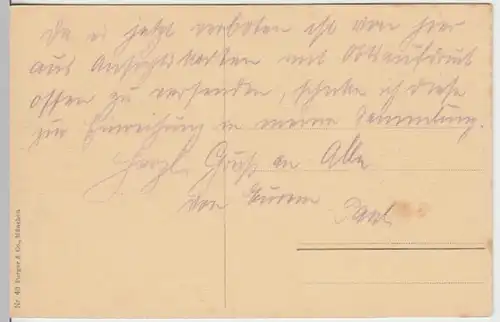 Da es jetzt verboten ist von hier
aus Ansichtskarten mit Ortsaufdruck
offen zu versenden, schicke ich diese
zur Einreihung in meine Sammlung.
Herzl. Gruß an Alle
von Eurem Paul
Nr. 43 Purger & Co., München